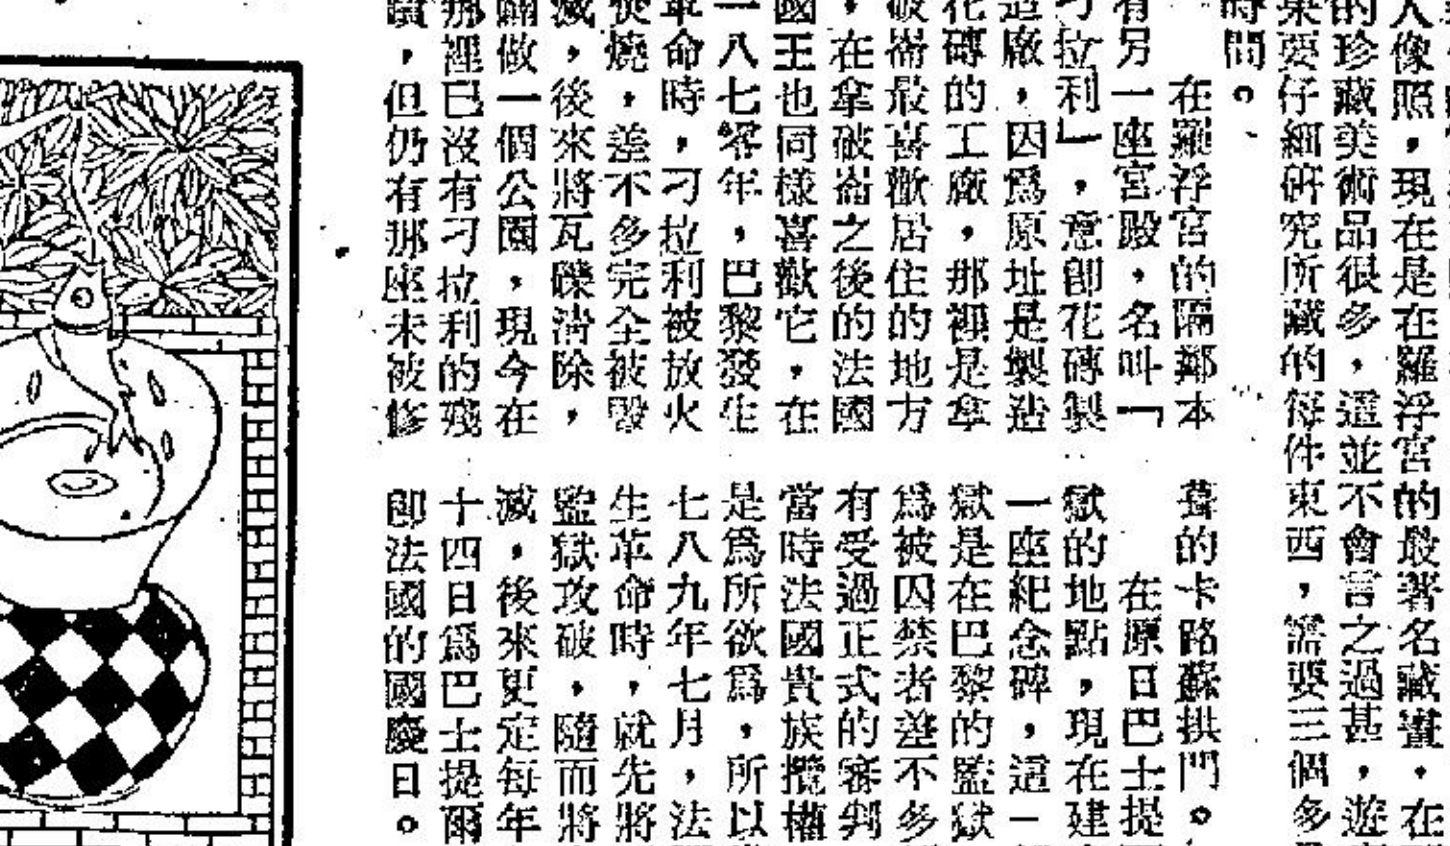 人像照，現在是在羅浮宮的最著名藏畫．在
的珍藏美術品很多，這並不會言之過甚，遊
果要仔細研究所藏的每件東西，需要三個多
時間。
在羅浮宮的隔鄰本
有另一座宮殿，名叫「
刁拉利」，意卽花磚製
造廠，因爲原址是製造
花磚的工廠，那裡是拿
破崙最喜歡居住的地方
，在拿破崙之後的法國
國王也同樣喜歡它，在
一八七零年，巴黎發生
革命時，刁拉利被放火
焚燒，差不多完全被毀
滅，後來將瓦礫淸除，
闢做一個公園，現今在
那裡已沒有刁拉利的殘
蹟，但仍有那座未被修
葺的卡路蘇拱門。
在原日巴士提
獄的地點，現在建
一座紀念碑，這一
獄是在巴黎的監獄
爲被囚禁者差不多
有受過正式的審判
當時法國貴族攬權
是爲所欲爲，所以
七八九年七月，法
生革命時，就先將
監獄攻破，隨而將
滅，後來更定每年
十四日爲巴士提爾
卽法國的國慶日。